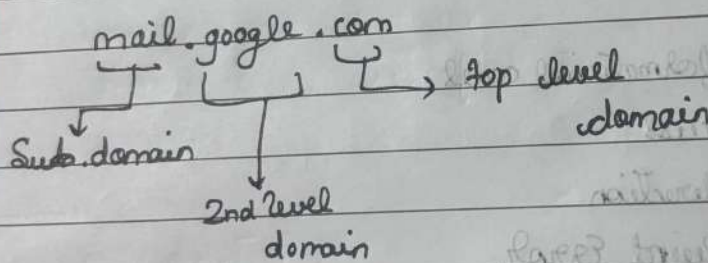 mail.google.com
top level
domain
Sub.domain
2nd level
domain